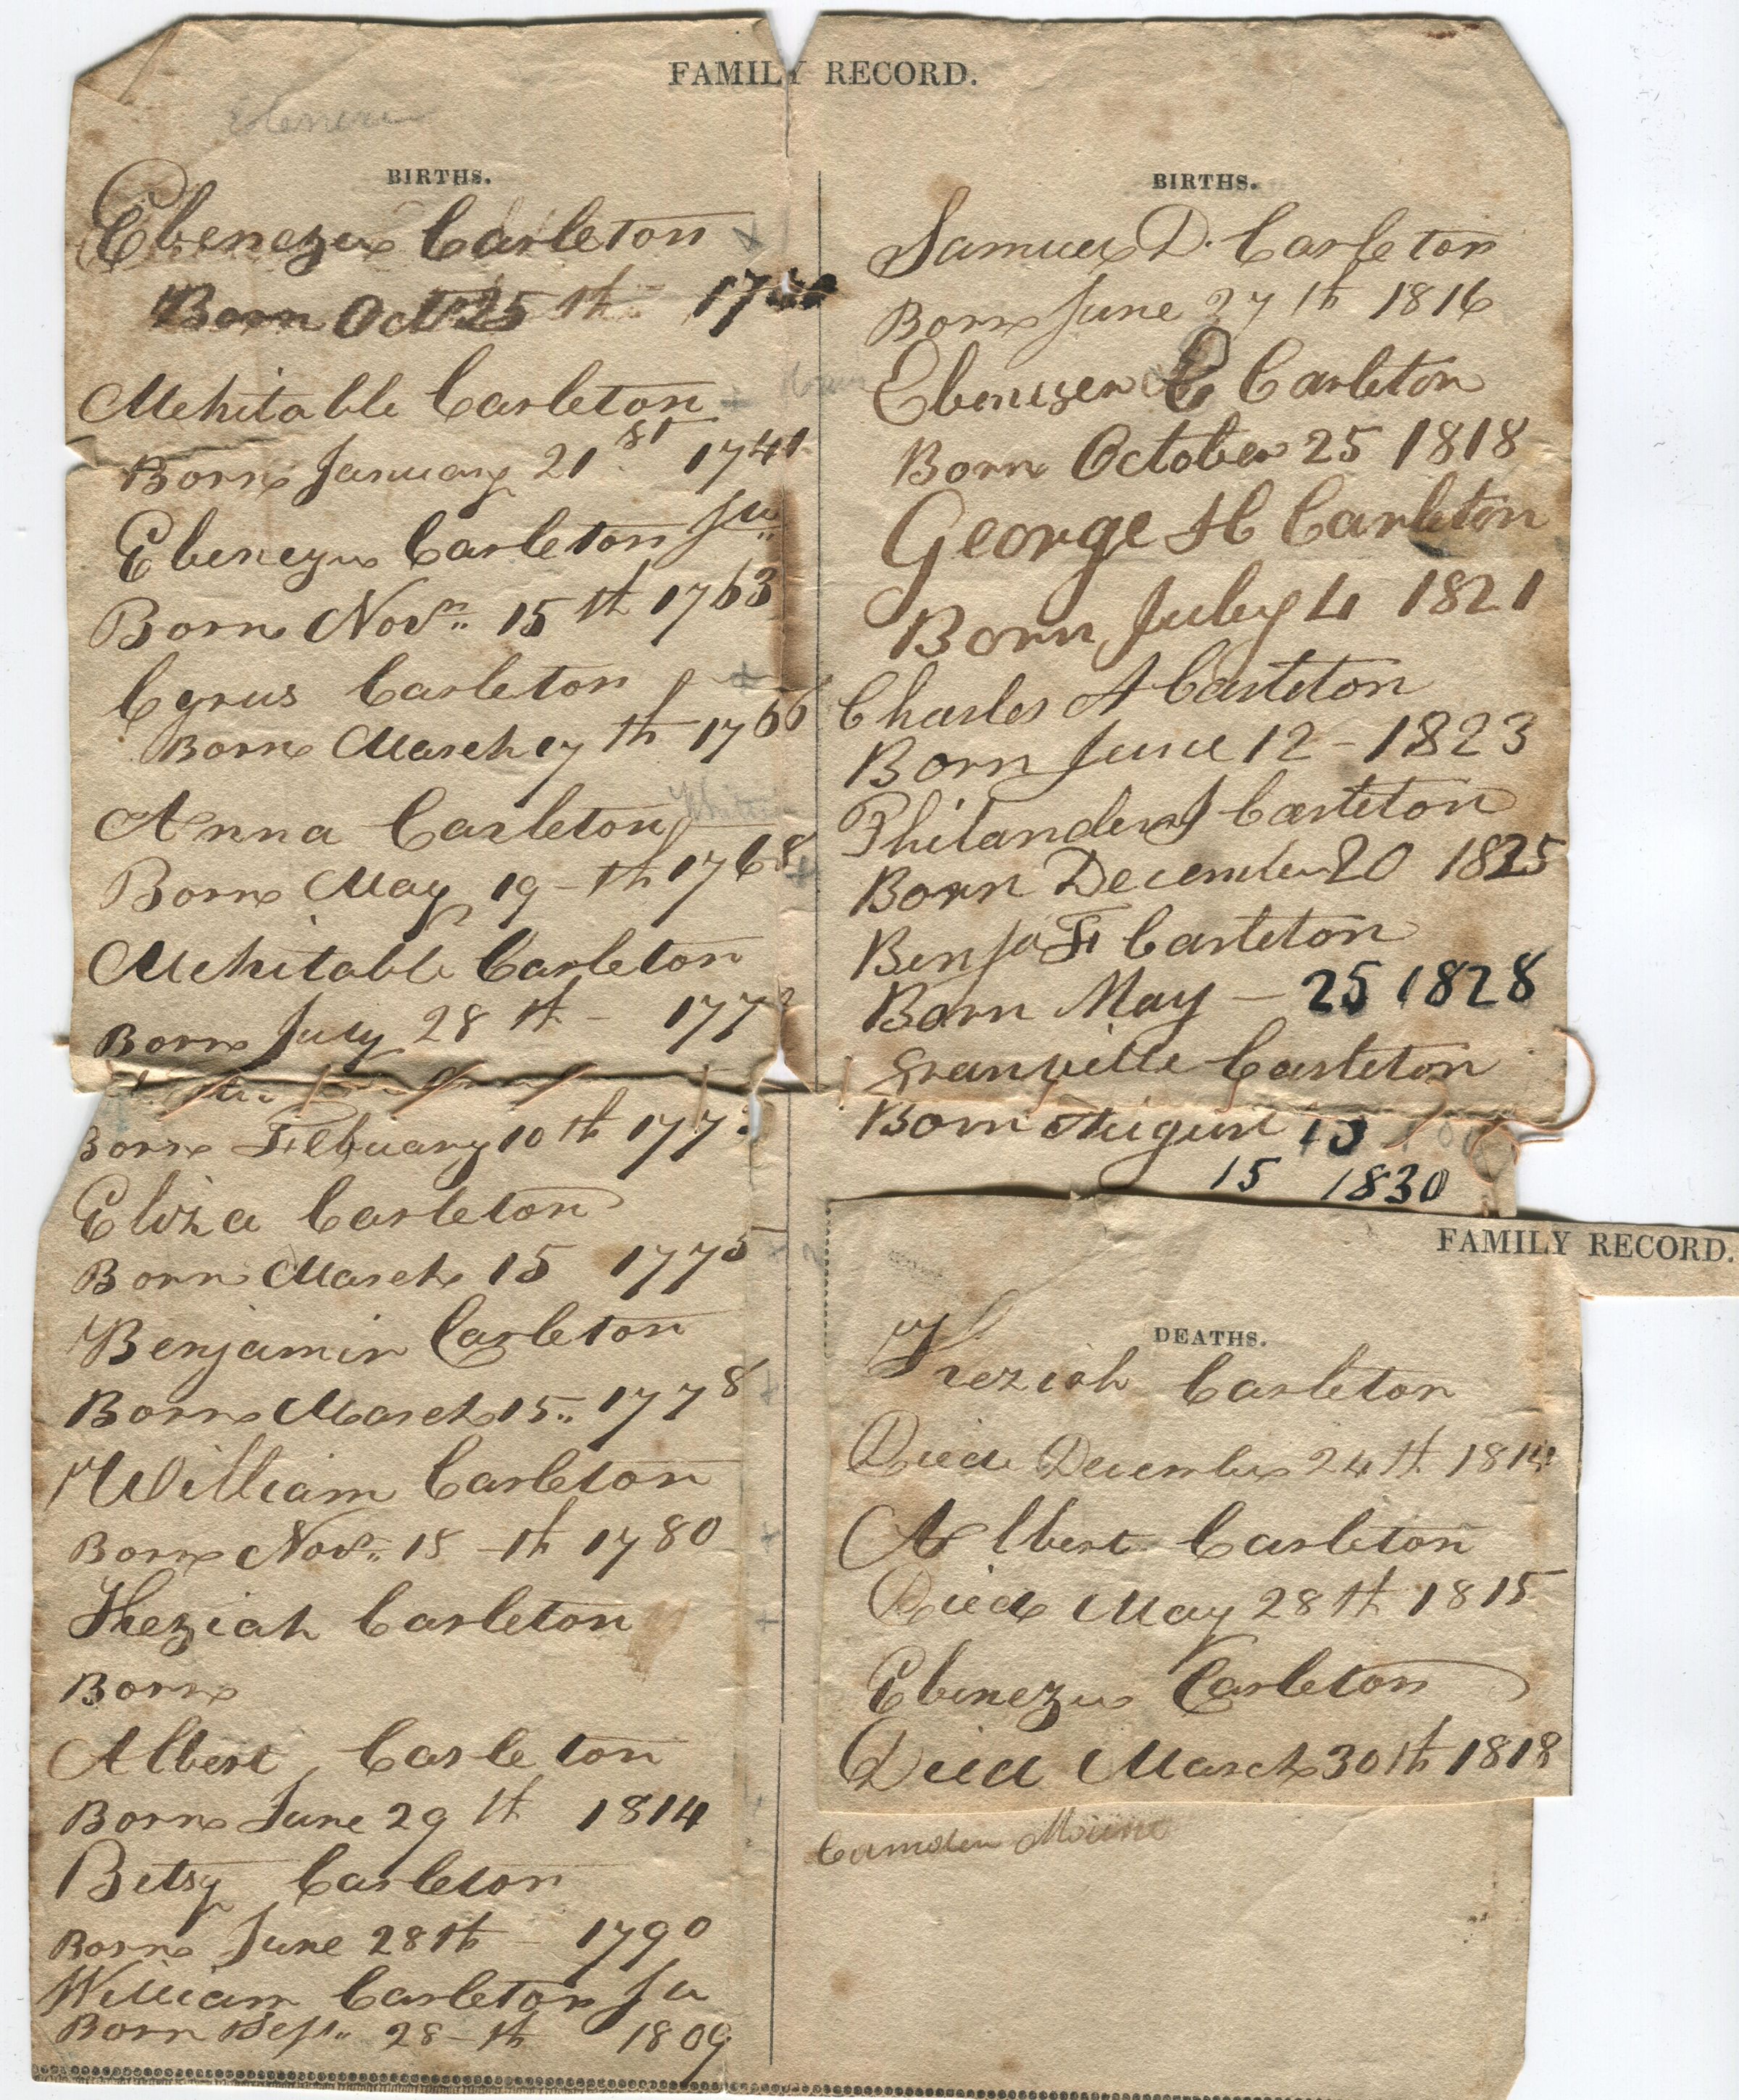 FAMILY RECORD.
BIRTHS.
Ebenezer Carleton
Born Oct 25 th
Mehitable Carleton
Born January 21st 1741
Ebenezer Carleton Ju
Born Novr. 15 th 1763
Cyrus Carleton
Born March 17 th 1766
Anna Carleton
Born May 19 - th 1768
Mehitable Carleton
Born July 28 th - 177
Born February 10 th 177
Eliza Carleton
Born March 15 1775
Benjamin Carleton
Born March 15.. 1778
William Carleton
Born Novr. 18 - th 1780
Keziah Carleton
Born
Albert Carleton
Born June 29 th 1814
Betsy Carleton
Born June 28th - 1790
William Carleton Ju
Born Sept.. 28 - th 1809
BIRTHS.
Samuel D. Carleton
Born June 27 th 1816
Ebenezer C Carleton
Born October 25 1818
George H Carleton
Born July 4 1821
Charles A Carleton
Born June 12 - 1823
Philander J Carleton
Born December 20 1825
Benja F Carleton
Born May - 25 1828
Granville Carleton
Born August 13
15 1830
FAMILY RECORD.
DEATHS.
Keziah Carleton
Died December 24 th 1814
Albert Carleton
Died May 28 th 1815
Ebenezer Carleton
Died March 30th 1818
Camden Maine